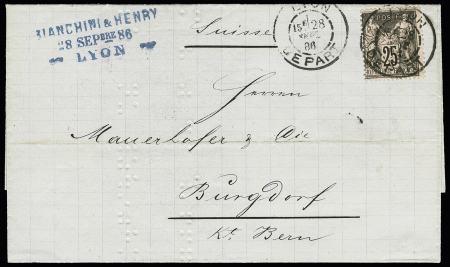 BIANCHINI & HENRY
28 SEPBRE 86
LYON
Suisse
LYON
15E 28
SEPT
86
DEPART
25
Herren
Mauerhofer & Cie
Burgdorf
Kt. Bern